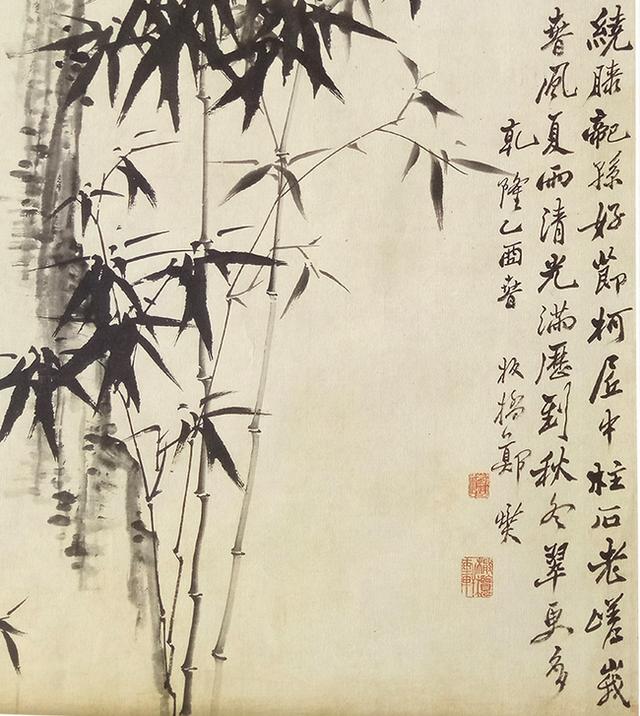 繞膝龍孫好節柯居中柱石老嵯峨
春風夏雨清光滿歷到秋冬翠更多
乾隆乙酉春 板橋鄭燮